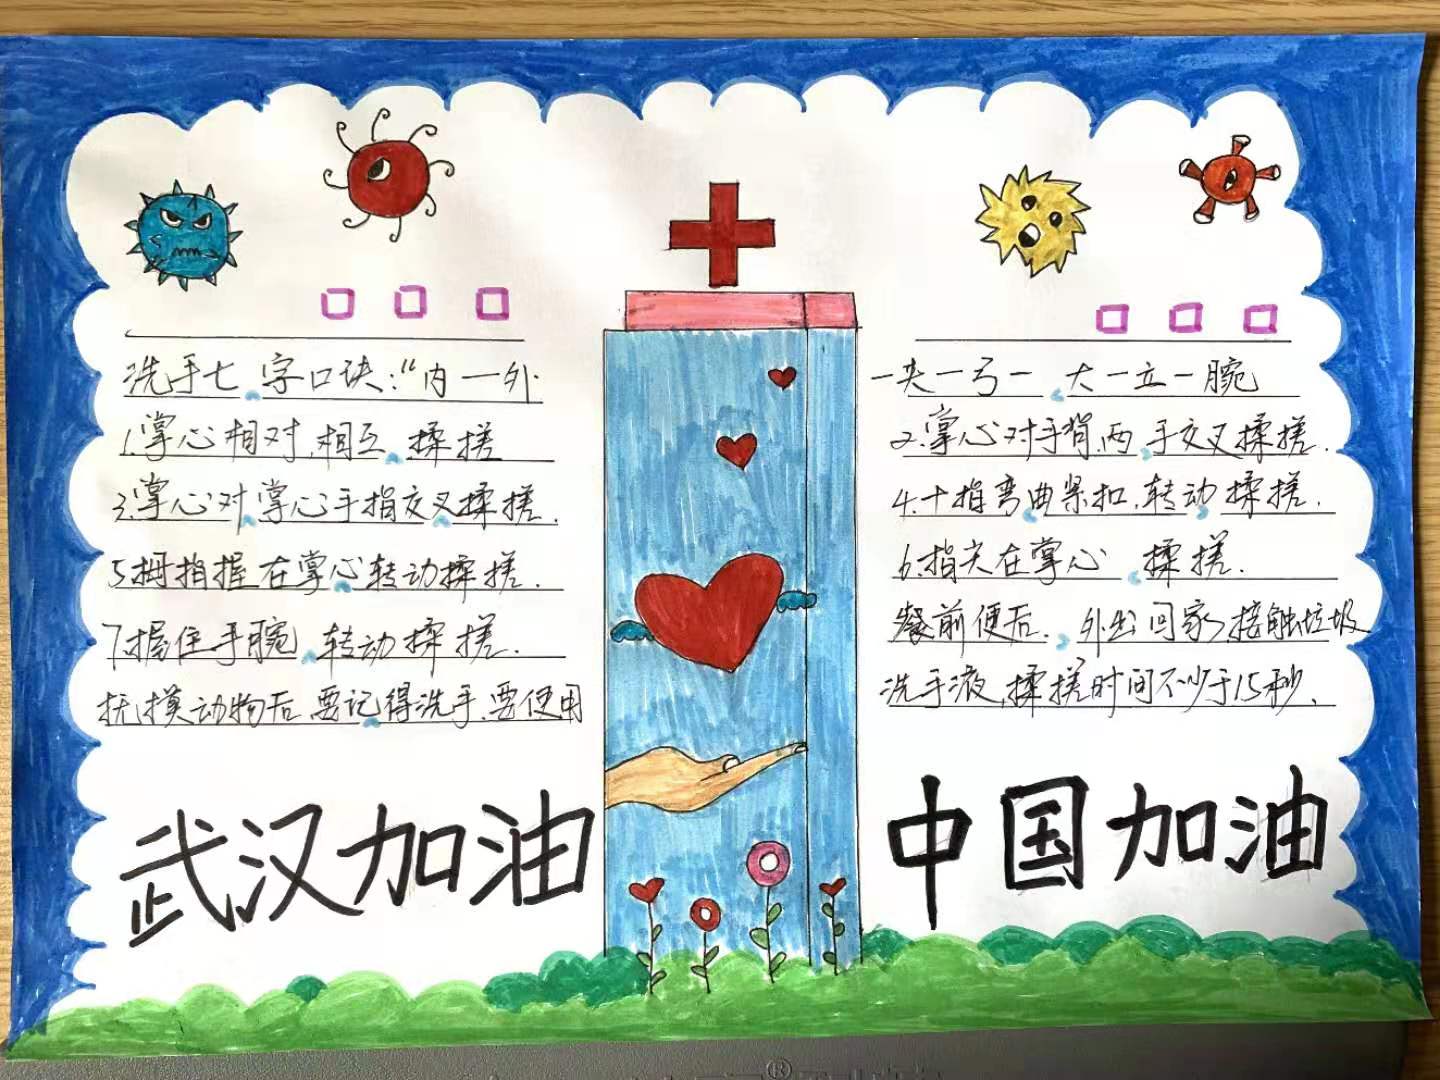 洗手七字口诀：“内一外
一夹一弓一大一立一腕
1.掌心相对,相互揉搓
2.掌心对手背,两手交叉揉搓.
3.掌心对掌心手指交叉揉搓.
4.十指弯曲紧扣,转动揉搓.
5.拇指握在掌心转动揉搓.
6.指尖在掌心揉搓.
7.握住手腕转动揉搓.
餐前便后、外出回家、接触垃圾
抚摸动物后,要记得洗手.要使用
洗手液,揉搓时间不少于15秒.
武汉加油
中国加油